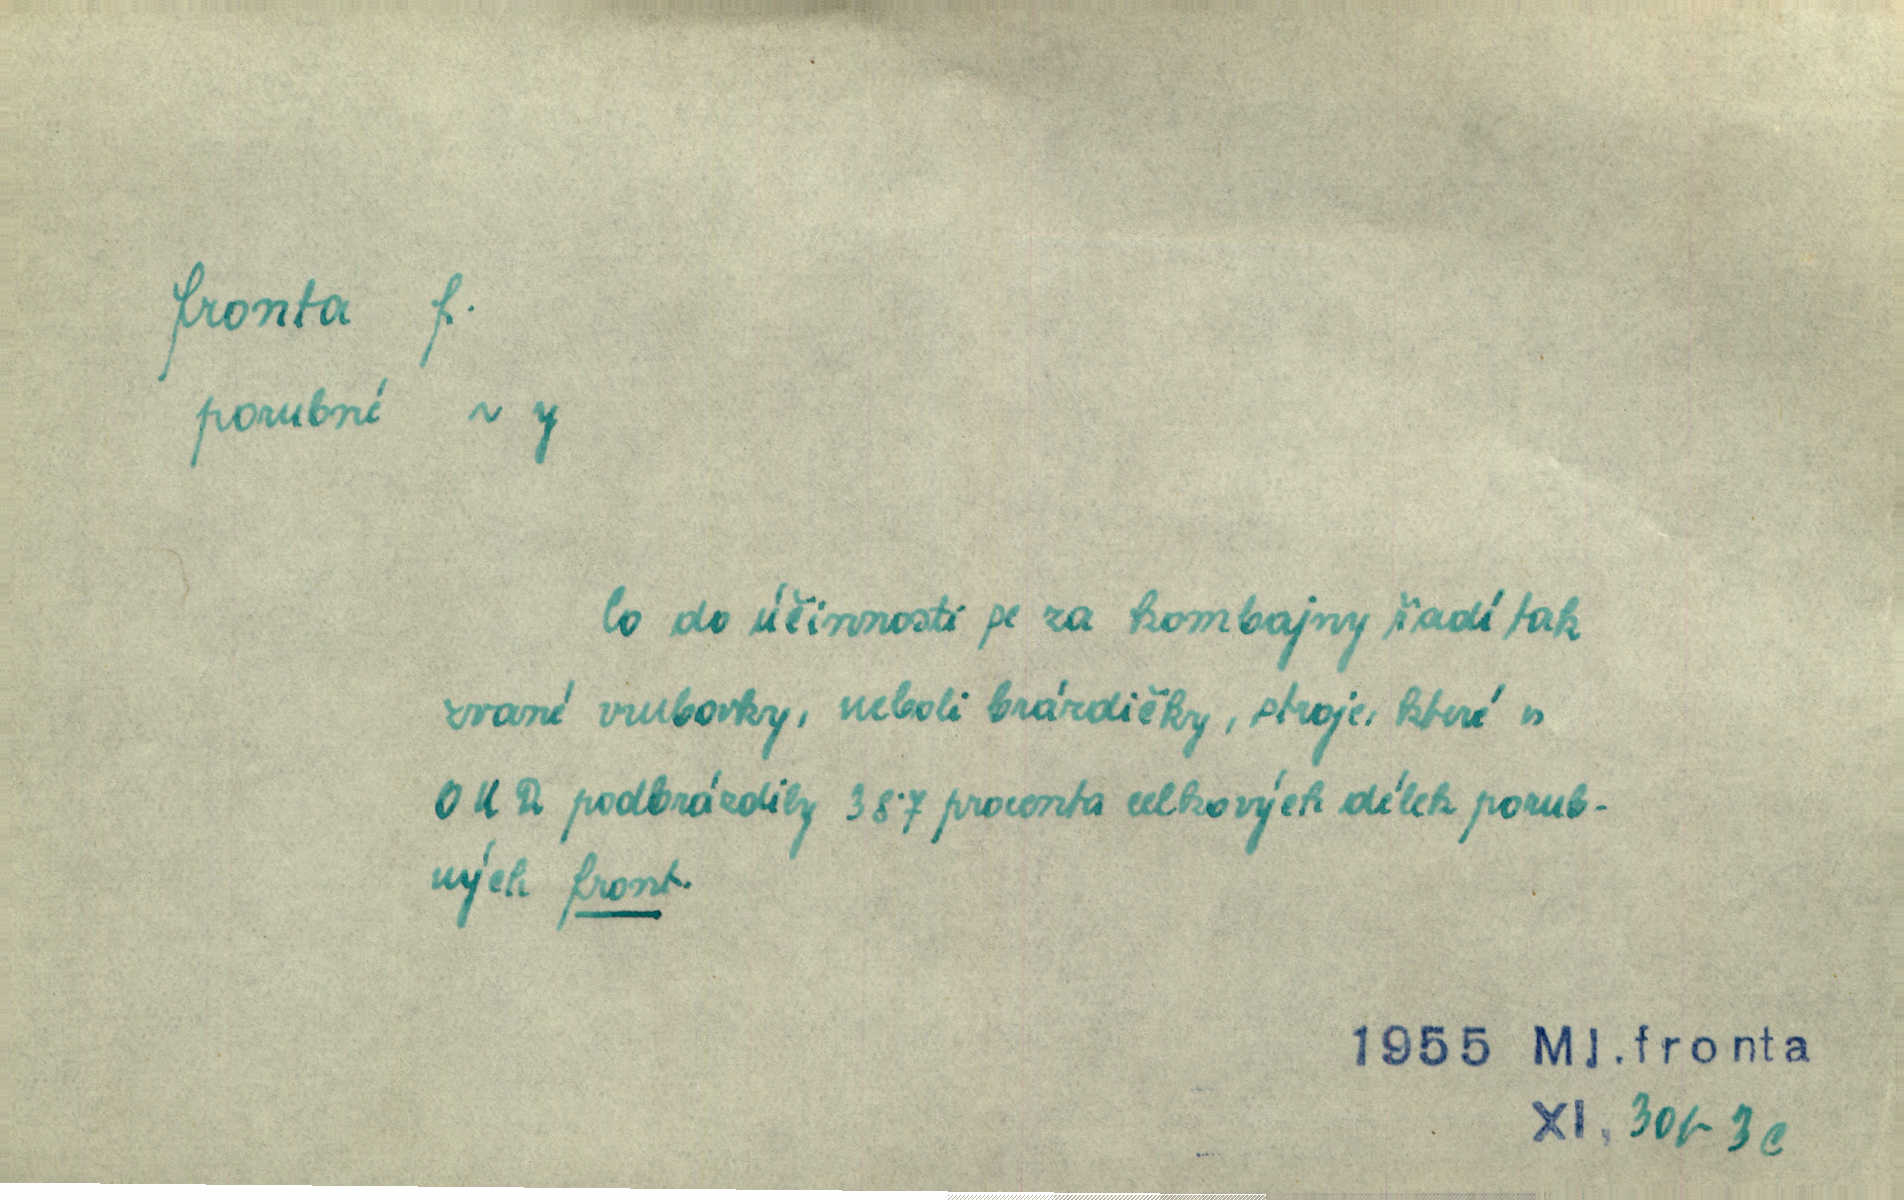 fronta f.
porubné ~ y
Co do účinnosti se za kombajny řadí tak
zvané vrubovky, neboli brázdičky, stroje, které v
OKR podbrázdily 38·7 procenta celkových délek porub-
ných front.
1955 Ml.fronta
XI, 3c